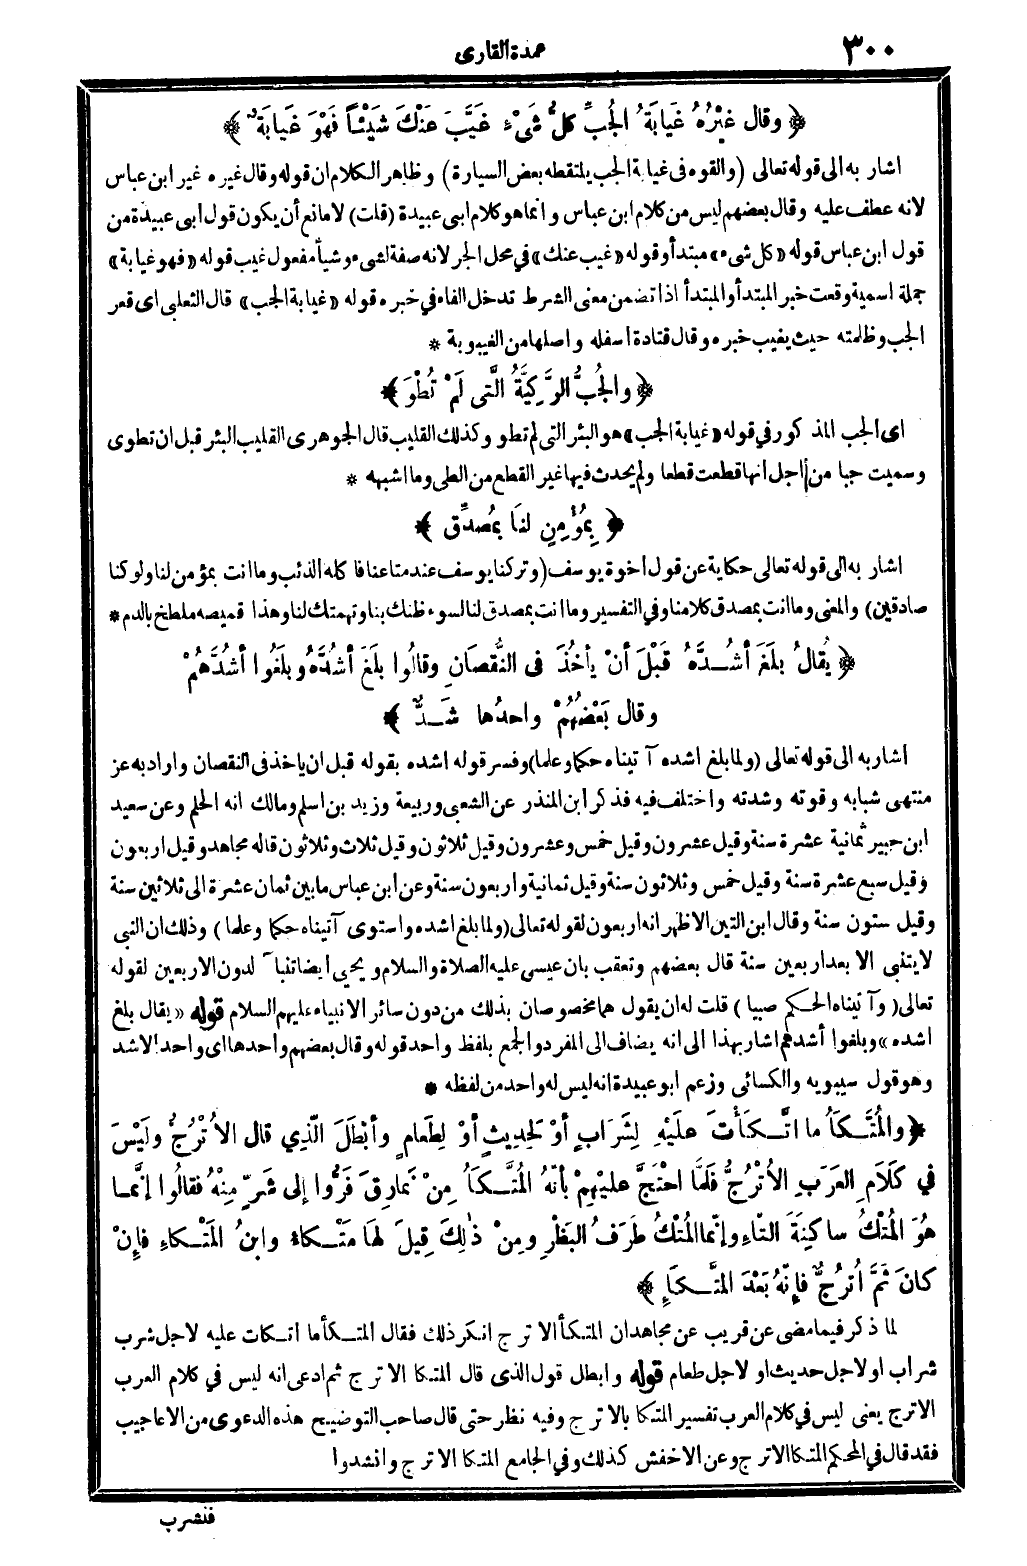 ٣٠٠
عمدة القارى
﴿ وقال غَيْرُهُ غَيابَةُ الجُبِّ كلُّ شَىْءٍ غَيَّبَ عَنْكَ شَيْئاً فَهْوَ غَيابَةٌ ﴾
اشار به الى قوله تعالى (والقوه فى غيابة الجب يلتقطه بعض السيارة) وظاهر الكلام ان قوله وقال غيره غير ابن عباس
لانه عطف عليه وقال بعضهم ليس من كلام ابن عباس وانما هو كلام ابى عبيدة (قلت) لا مانع أن يكون قول ابى عبيدة من
قول ابن عباس قوله «كل شىء» مبتدأ وقوله «غيب عنك» في محل الجر لانه صفة لشىء وشيأ مفعول غيب قوله «فهو غيابة»
جملة اسمية وقعت خبر المبتدأ والمبتدأ اذا تضمن معنى الشرط تدخل الفاء في خبره قوله «غيابة الجب» قال الثعلبى اى قعر
الجب وظلمته حيث يغيب خبره وقال قتادة اسفله واصلها من الغيبوبة *
﴿ والجُبُّ الرَّكِيَّةُ الَّتى لَمْ تُطْوَ ﴾
اى الجب المذكور في قوله «غيابة الجب» هو البئر التى لم تطو وكذلك القليب قال الجوهرى القليب البئر قبل ان تطوى
وسميت جبا من أجل انها قطعت قطعا ولم يحدث فيها غير القطع من الطى وما اشبهه *
﴿ بِمُؤْمِنٍ لَنا بِمُصدِّقٍ ﴾
اشار به الى قوله تعالى حكاية عن قول اخوة يوسف (وتركنا يوسف عند متاعنا فاكله الذئب وما انت بمؤمن لنا ولو كنا
صادقين) والمعنى وما انت بمصدق كلامنا وفي التفسير وما انت بمصدق لنا لسوء ظنك بنا وتهمتك لنا وهذا قميصه ملطخ بالدم *
﴿ يُقالُ بلَغَ أشُدَّهُ قَبْلَ أنْ يأخُذَ فى النُّقصَانِ وقالُوا بلَغَ أشُدَّهُ وبلَغُوا أشُدَّهُمْ
وقال بَعْضُهُمْ واحدُها شَدٌّ ﴾
اشار به الى قوله تعالى (ولما بلغ اشده آتيناه حكما وعلما) وفسر قوله اشده بقوله قبل ان ياخذ فى النقصان واراد به عز
منتهى شبابه وقوته وشدته واختلف فيه فذكر ابن المنذر عن الشعبى وربيعة وزيد بن اسلم ومالك انه الحلم وعن سعيد
ابن جبير ثمانية عشرة سنة وقيل عشرون وقيل خمس وعشرون وقيل ثلاثون وقيل ثلاث وثلاثون قاله مجاهد وقيل اربعون
وقيل سبع عشرة سنة وقيل خمس وثلاثون سنة وقيل ثمانية واربعون سنة وعن ابن عباس ما بين ثمان عشرة الى ثلاثين سنة
وقيل ستون سنة وقال ابن التين الاظهر انه اربعون لقوله تعالى (ولما بلغ اشده واستوى آتيناه حكما وعلما) وذلك ان النبى
لا يتنبى الا بعد اربعين سنة قال بعضهم وتعقب بان عيسى عليه الصلاة والسلام ويحيى ايضا تنبآ لدون الاربعين لقوله
تعالى (وآتيناه الحكم صبيا) قلت له ان يقول هما مخصوصان بذلك من دون سائر الانبياء عليهم السلام قوله «يقال بلغ
اشده» وبلغوا أشدهم اشار بهذا الى انه يضاف الى المفرد والجمع بلفظ واحد قوله وقال بعضهم واحدها اى واحد الاشد
وهو قول سيبويه والكسائى وزعم ابو عبيدة انه ليس له واحد من لفظه *
﴿ والمُتَّكَأُ ما اتَّكَأْتَ علَيْهِ لِشَرَابٍ أوْ لِحَدِيثٍ أوْ لِطَعامٍ وأبْطَلَ الَّذِي قال الأُتْرُجُّ ولَيْسَ
في كَلَامِ العَرَبِ الأُتْرُجُّ فَلَمَّا احْتَجَّ عليْهِمْ بأنَّهُ المُتَّكَأُ مِنْ نَمارِقَ فَرُّوا إلى شَرٍّ مِنْهُ فقالُوا إنَّما
هُوَ المُتْكُ ساكِنَةَ التَّاءِ وإنَّما المُتْكُ طَرَفُ البَظْرِ ومِنْ ذٰلِكَ قِيلَ لَها مَتْكاءُ وابنُ المَتْكاءِ فإِنْ
كانَ ثَمَّ أُترُجٌّ فإِنَّهُ بَعْدَ المُتَّكَإِ ﴾
لما ذكر فيما مضى عن قريب عن مجاهد ان المتكأ الاترج انكر ذلك فقال المتكأ ما اتكات عليه لاجل شرب
شراب او لاجل حديث او لاجل طعام قوله وابطل قول الذى قال المتكا الاترج ثم ادعى انه ليس في كلام العرب
الاترج يعنى ليس في كلام العرب تفسير المتكا بالاترج وفيه نظر حتى قال صاحب التوضيح هذه الدعوى من الاعاجيب
فقد قال في المحكم المتكا الاترج وعن الاخفش كذلك وفي الجامع المتكا الاترج وانشدوا
فنشرب